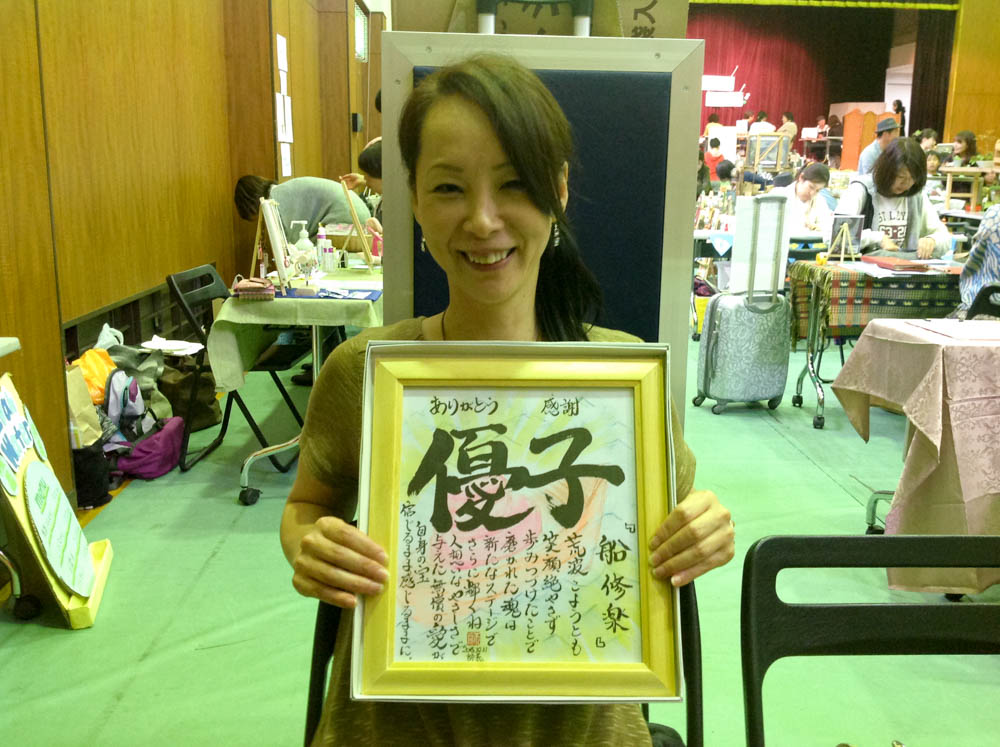 ありがとう 感謝
優子
『船修楽』
荒波こようとも
笑顔絶やさず
歩みつづけたことで
磨かれた魂は
新たなステージで
さらに輝くね
人想いなやさしさで
与えた無償の愛が
自身の宝
信じるまま感じるままに、